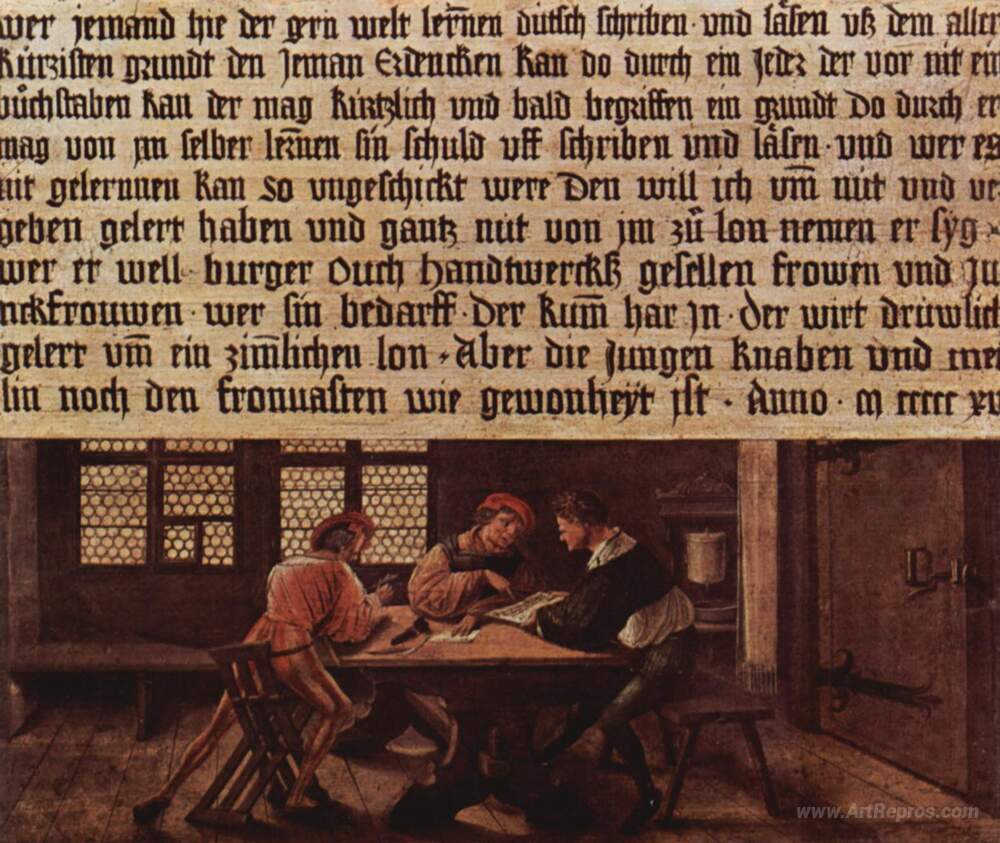 wer jemand hie der gern welt lern̄en dütsch schriben · vnd läsen vß dem aller
kürzisten grundt den Jeman Erdencken kan do durch ein Jeder der vor nit ein
bůchstaben kan der mag kürtzlich vnd bald begriffen ein grundt do durch er
mag von jm selber lernen sin schuld vff schriben vnd läsen · vnd wer es
nit gelernnen kan so vngeschickt were Den will ich vm̄ nüt vnd ve
geben gelert haben vnd gantz nüt von jm zů lon nemen er syg ·
wer er well · burger ouch handtwerckß gesellen frowen vnd ju
nckfrouwen · wer sin bedarff · Der kum̄ har jn · der wirt drüwlich
gelert vm̄ ein zim̄lichen lon · Aber die jungen knaben vnd mei
lin noch den fronuasten wie gewonheyt jst · Anno · m ccccc xv
www.ArtRepros.com